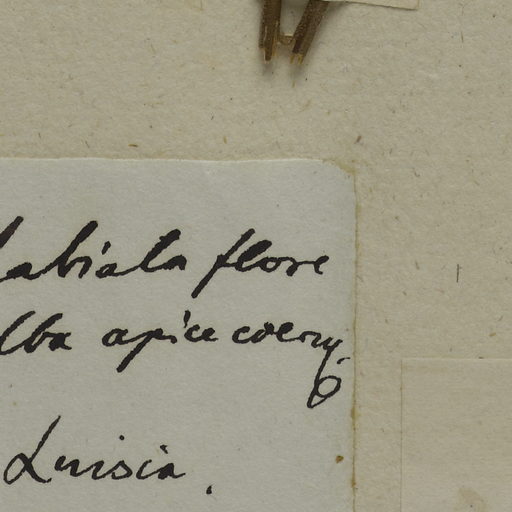 labiata flore
alba apice coeru
Luisia.